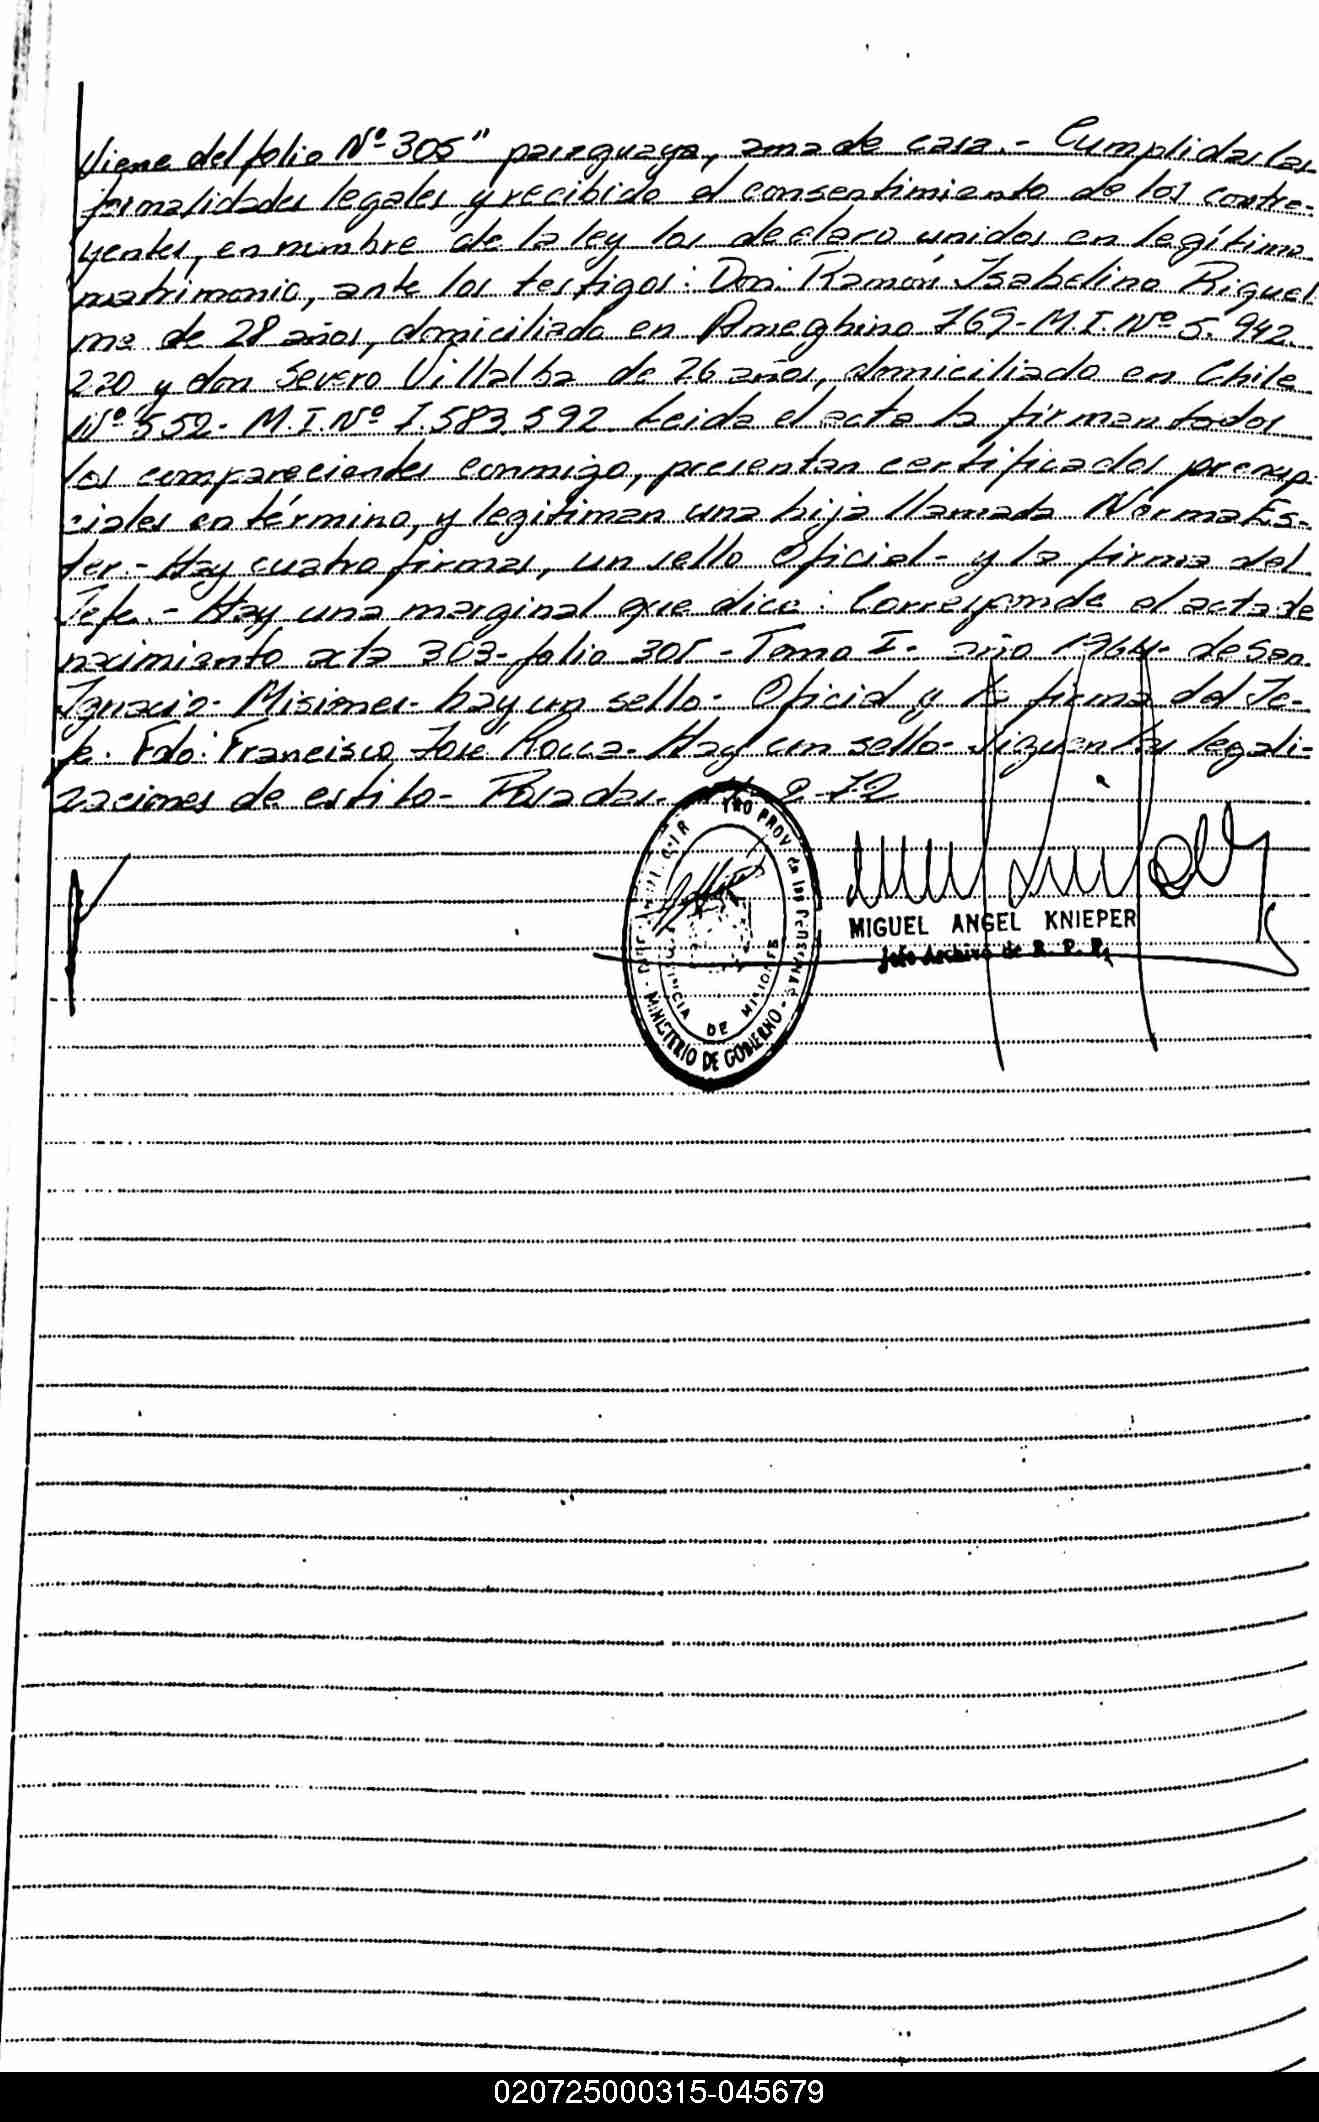 Viene del folio Nº 305" paraguaya, ama de casa.- Cumplidas las
formalidades legales y recibido el consentimiento de los contra-
yentes, en nombre de la ley los declaro unidos en legítimo
matrimonio, ante los testigos: Don: Ramón Isabelino Riquel
me de 28 años, domiciliado en Ameghino 769- M.I. Nº 5.942.
220 y don Severo Villalba de 26 años, domiciliado en Chile
Nº 552- M.I. Nº 7.583.592 Leida el acta la firman todos
los comparecientes conmigo, presentan certificados prenup
ciales en término, y legitiman una hija llamada Norma Es-
ter.- Hay cuatro firmas, un sello Oficial- y la firma del
Jefe.- Hay una marginal que dice: Corresponde al acta de
nacimiento acta 303- folio 305- Tomo I- año 1964- de San
Ignacio- Misiones- hay un sello- Oficial y la firma del Je-
fe. Fdo: Francisco José Rocca- Hay un sello- Siguen las legali-
zaciones de estilo- Posadas. 2-72
MIGUEL ANGEL KNIEPER
Jefe Archivo de R. P. P.
MINISTERIO DE GOBIERNO -
PROV de las Personas
PROVINCIA DE MISIONES
020725000315-045679